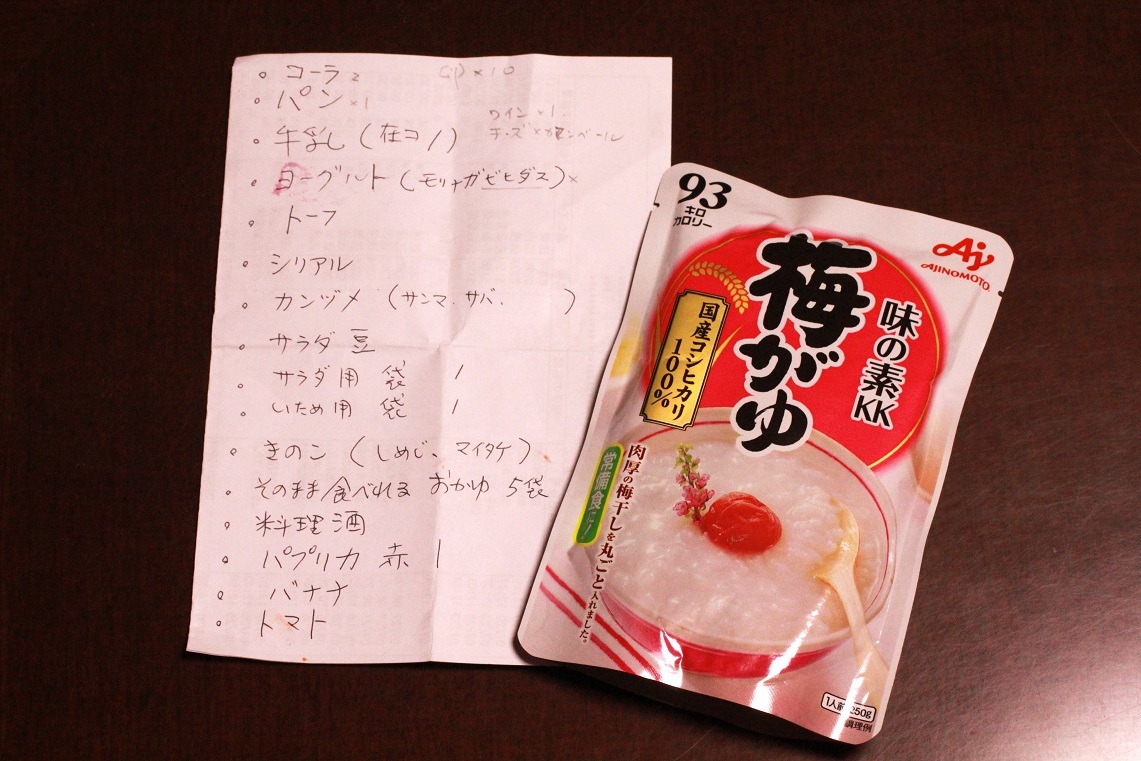 コーラ 2
パン ×1
ワイン ×1
牛乳し (在コ 1)
ヨーグルト (モリナガビヒダス)×
トーフ
シリアル
カンヅメ (サンマ、サバ、 )
サラダ 豆
サラダ用 袋 1
いため用 袋 1
きのこ (しめじ、マイタケ)
そのまま食べれる おかゆ 5袋
料理酒
パプリカ 赤 1
バナナ
トマト
93
キロ
カロリー
Aj
AJINOMOTO
味の素KK
梅がゆ
国産コシヒカリ
100%
肉厚の梅干しを丸ごと入れました。
常備食に!
1人前 250g
調理例